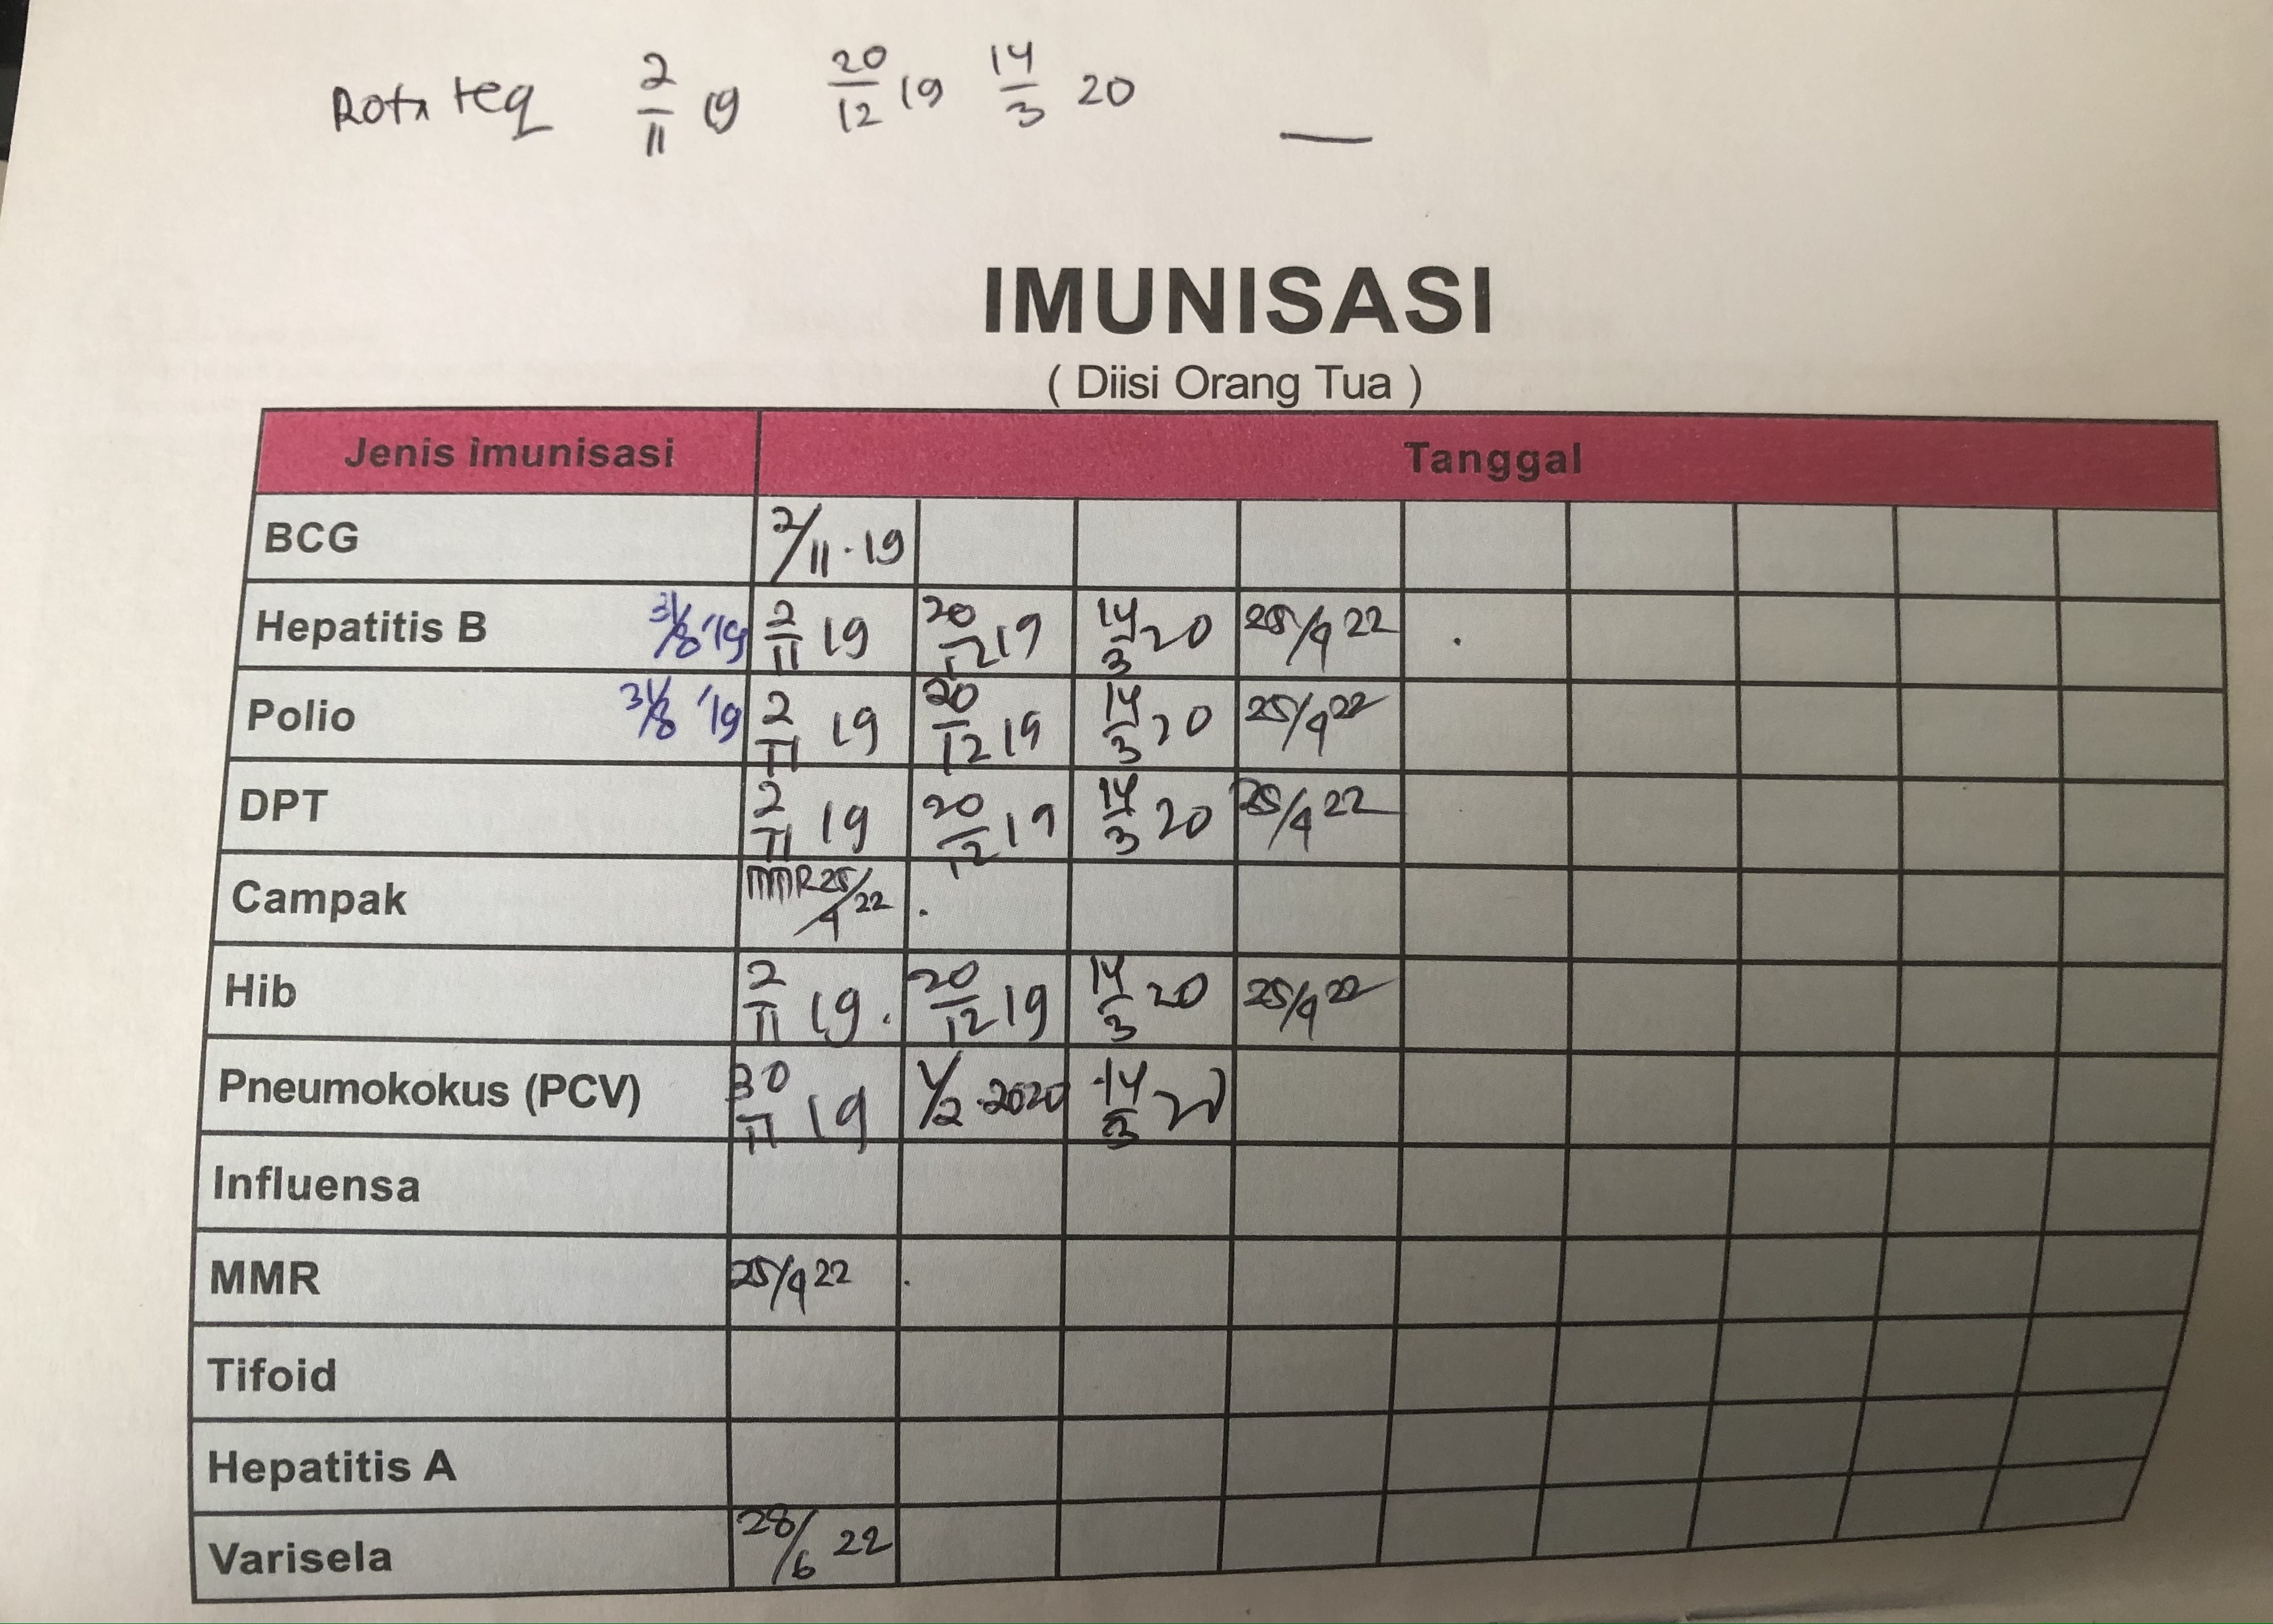 Rotateq 2/11 19 20/12 19 14/3 20 —
IMUNISASI
( Diisi Orang Tua )
Jenis imunisasi Tanggal
BCG 2/11·19
Hepatitis B 31/8 '19 2/11 19 20/12 19 14/3 20 25/4 22
Polio 31/8 '19 2/11 19 20/12 19 14/3 20 25/4 22
DPT 2/11 19 20/12 19 14/3 20 25/4 22
Campak MMR 25/4/22
Hib 2/11 19. 20/12 19 14/3 20 25/4 22
Pneumokokus (PCV) 30/11 19 1/2·2020 14/3 20
Influensa
MMR 25/4 22
Tifoid
Hepatitis A
Varisela 28/6 22